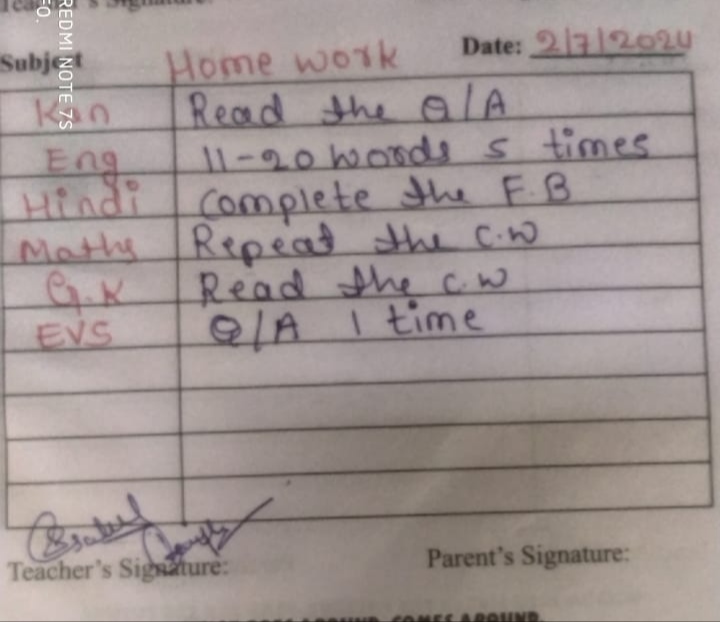 Teacher's Signature:
REDMI NOTE 7S
EO.
Date: 2/7/2024
Subject Home work
Kan Read the Q/A
Eng 11-20 words 5 times
Hindi Complete the F.B
Maths Repeat the C.W
G.K Read the C.W
EVS Q/A 1 time
Teacher's Signature: Parent's Signature:
COMES AROUND.